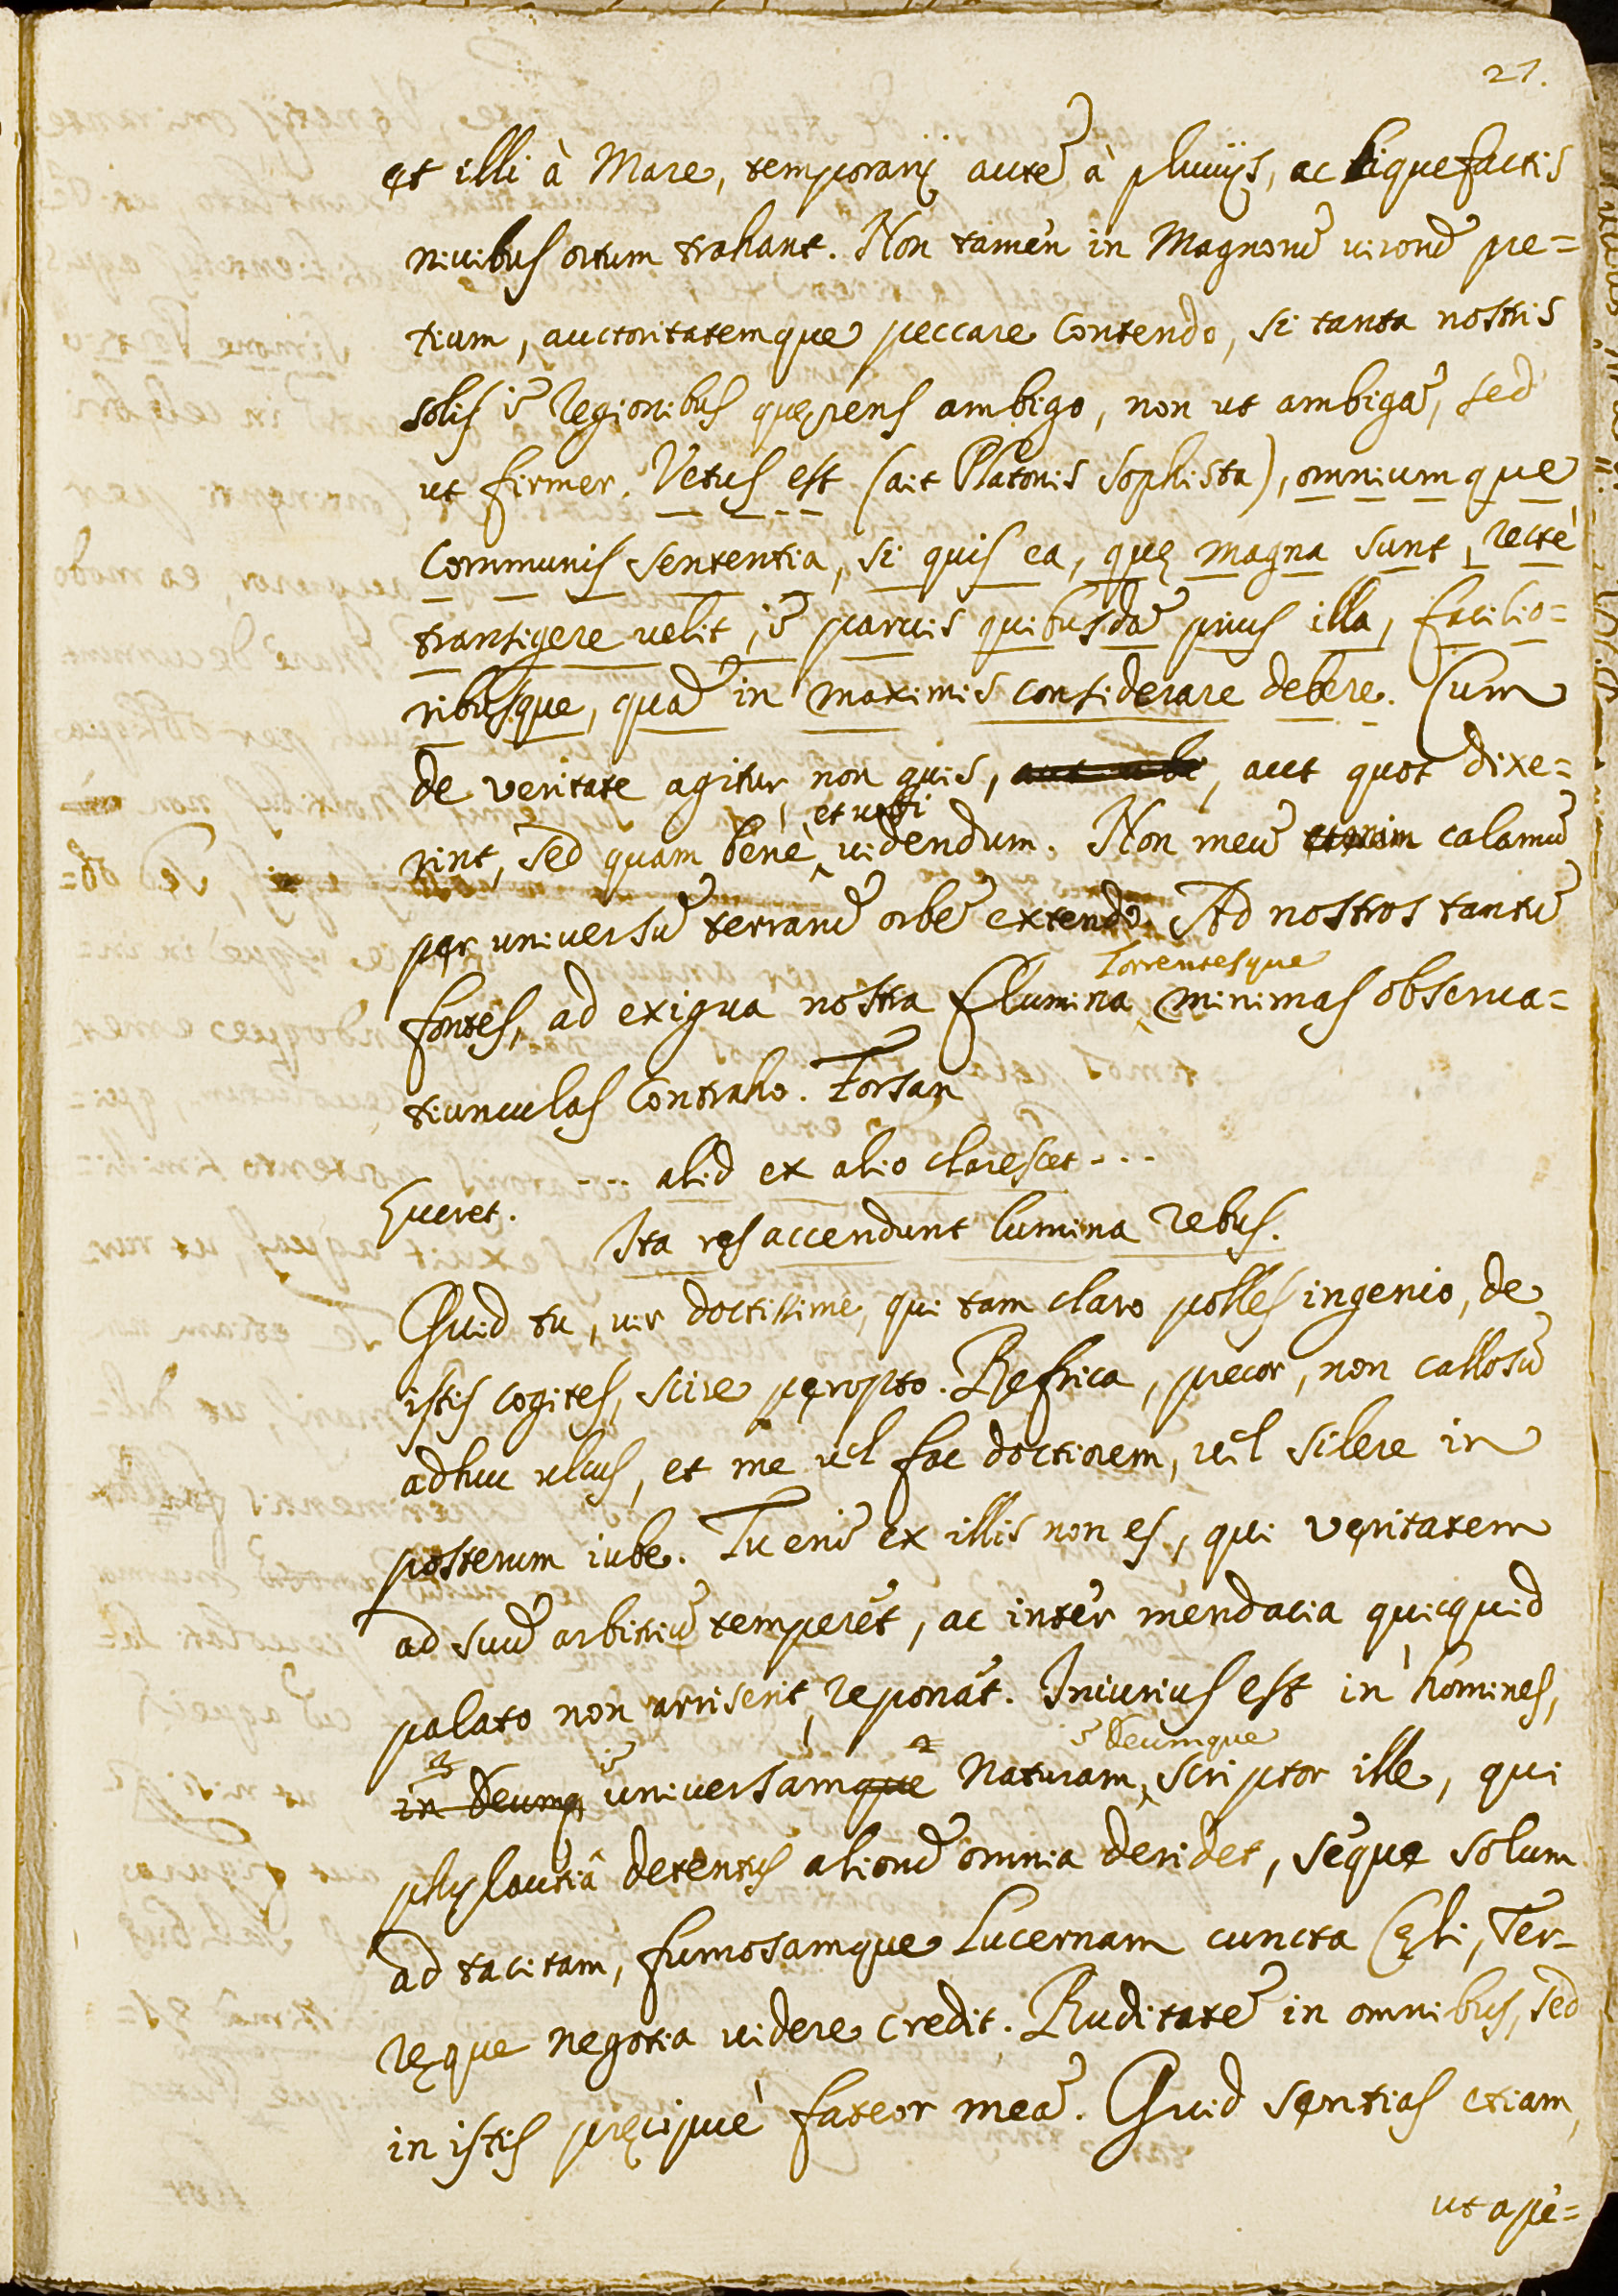 21.
et illi à Mare, temporarij autē à pluuijs, ac liquefactis
niuibus ortum trahant. Non tamen in Magnorū virorū pre=
tium, auctoritatemque peccare contendo, si tanta nostris
solis ī regionibus quęrens ambigo, non ut ambigā, sed
ut firmer. Vetus est (ait Platonis Sophista), omniumque
communis sententia, si quis ea, quę magna sunt, rectè
transigere uelit, ī paruis quibusdā prius illa, facilio=
ribusque, quā in maximis considerare debere. Cum
de veritate agitur non quis, aut ubi, aut quot dixe=
et ubi
rint, sed quam benè, uidendum. Non meū etenim calamū
per universū terrarū orbē extendo. Ad nostros tantū
Torrentesque
fontes, ad exigua nostra flumina minimas obserua=
tiunculas contraho. Forsan
... alid ex alio clarescet ...
Lucret.
Ita res accendunt lumina rebus.
Quid tu, uir doctissime, qui tam claro polles ingenio, de
istis cogites, scire peropto. Refrica, precor, non callosū
adhuc ulcus, et me uel fac doctiorem, uel silere in
posterum iube. Tu enī ex illis non es, qui veritatem
ad suū arbitriū temperet, ac inter mendacia quicquid
palato non arriserit, reponat. Iniurius est in homines,
ī ī Deumque
in Deumq; universamque Naturam, scriptor ille, qui
phylautiâ detentus aliorū omnia deridet, sèque solum
ad tacitam, fumosamque Lucernam cuncta Cęli, Ter=
ręque negotia uidere credit. Ruditatē in omnibus, sed
in istis pręcipuè fateor meā. Quid sentias etiam,
ut ape=